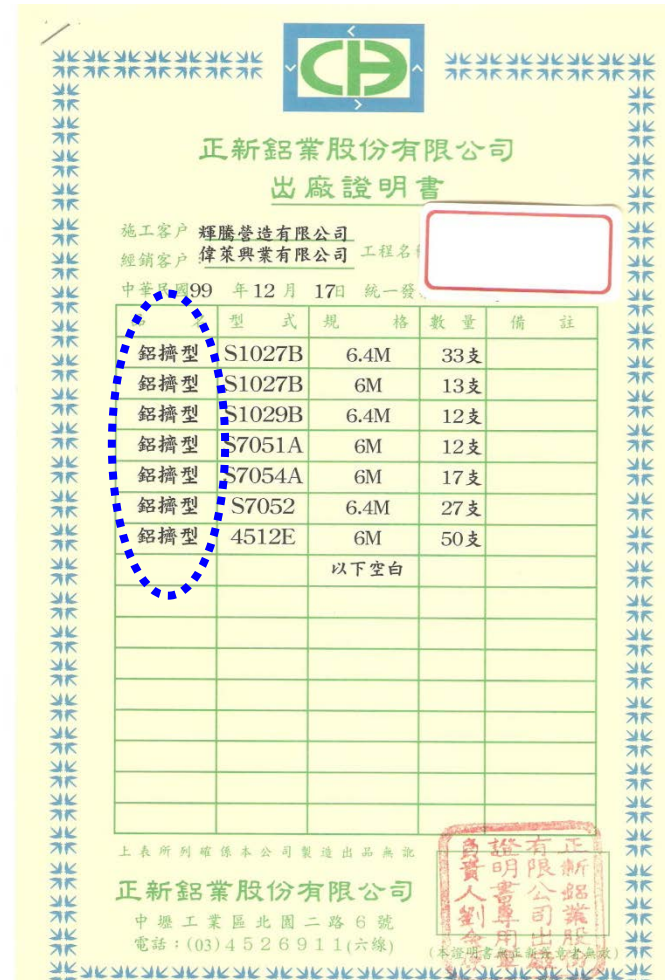 CH
正新鋁業股份有限公司
出廠證明書
施工客戶 輝騰營造有限公司
經銷客戶 偉萊興業有限公司 工程名
中華民國99 年12月 17日 統一發
型 式 規 格 數 量 備 註
鋁擠型 S1027B 6.4M 33支
鋁擠型 S1027B 6M 13支
鋁擠型 S1029B 6.4M 12支
鋁擠型 S7051A 6M 12支
鋁擠型 S7054A 6M 17支
鋁擠型 S7052 6.4M 27支
鋁擠型 4512E 6M 50支
以下空白
上表所列確係本公司製造出品無訛
正新鋁業股份有限公司
中壢工業區北園二路6號
電話:(03)4526911(六線)
正新鋁業股
有限公司出
證明書專用
負責人劉